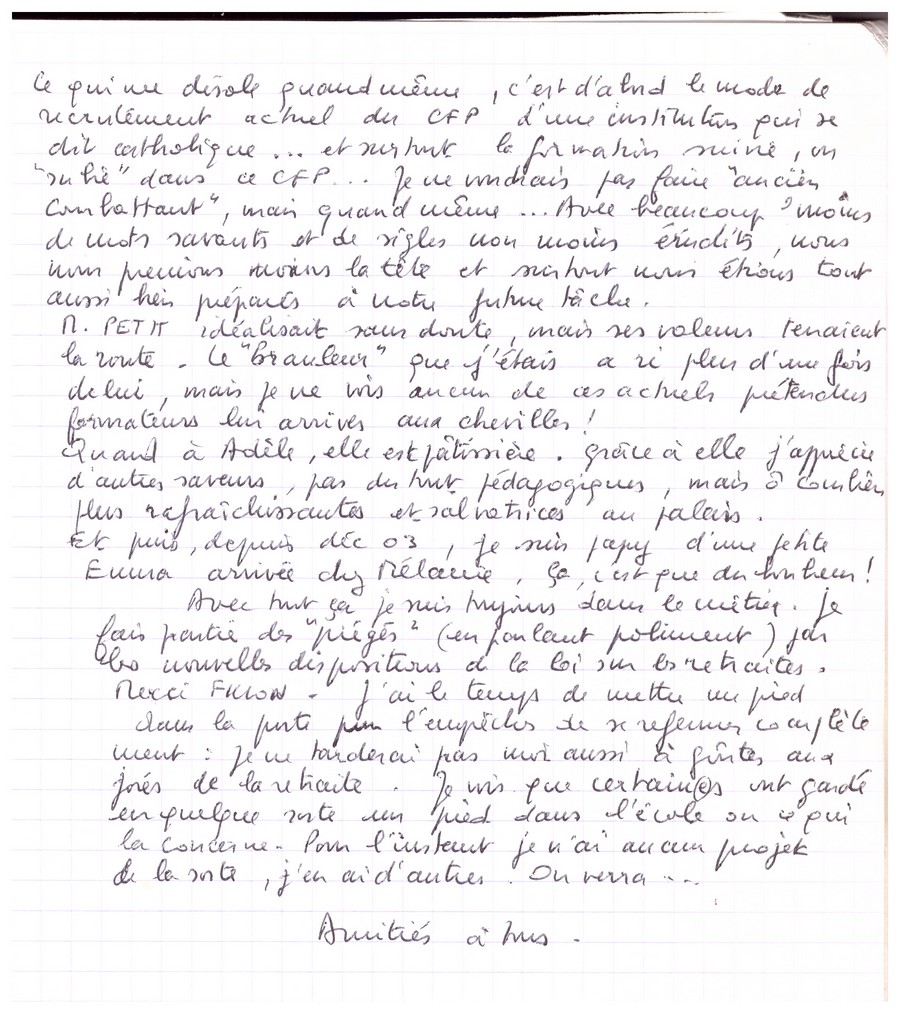 Ce qui me désole quand même, c'est d'abord le mode de
recrutement actuel du CFP d'une institution qui se
dit catholique ... et surtout la formation suivie, ou
"subie" dans ce CFP... Je ne voudrais pas faire "ancien
combattant", mais quand même ... Avec beaucoup moins
de mots savants et de sigles non moins érudits, nous
nous prenions moins la tête et surtout nous étions tout
aussi bien préparés à notre future tâche.
M. PETIT idéalisait sans doute, mais ses valeurs tenaient
la route. Le "branleur" que j'étais a ri plus d'une fois
de lui, mais je ne vois aucun de ces actuels prétendus
formateurs lui arriver aux chevilles !
Quand à Adèle, elle est pâtissière. Grâce à elle j'apprécie
d'autres saveurs, pas du tout pédagogiques, mais ô combien
plus rafraîchissantes et salvatrices au palais.
Et puis, depuis déc 03, je suis papy d'une petite
Emma arrivée chez Mélanie, ça, c'est que du bonheur !
Avec tout ça je suis toujours dans le métier. Je
fais partie des "piégés" (en parlant poliment) par
les nouvelles dispositions de la loi sur les retraites.
Merci FILLON. J'ai le temps de mettre un pied
dans la porte pour l'empêcher de se refermer complète
ment : je ne tarderai pas moi aussi à goûter aux
joies de la retraite. Je vois que certain(e)s ont gardé
en quelque sorte un pied dans l'école ou ce qui
la concerne. Pour l'instant je n'ai aucun projet
de la sorte, j'en ai d'autres. On verra ...
Amitiés à tous.